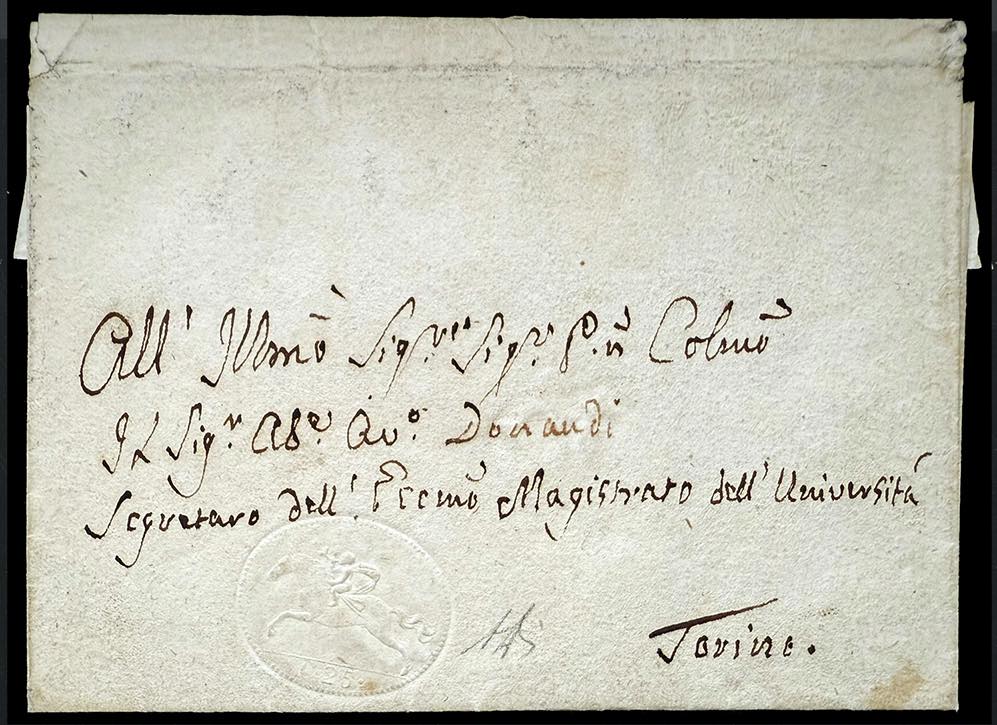 All' Illmõ Sig.re Sig.r P.n Colmõ
Il Sig.r Ab.e Avo. Donaudi
Segretaro dell' Eccmõ Magistrato dell' Università
Torino.
25